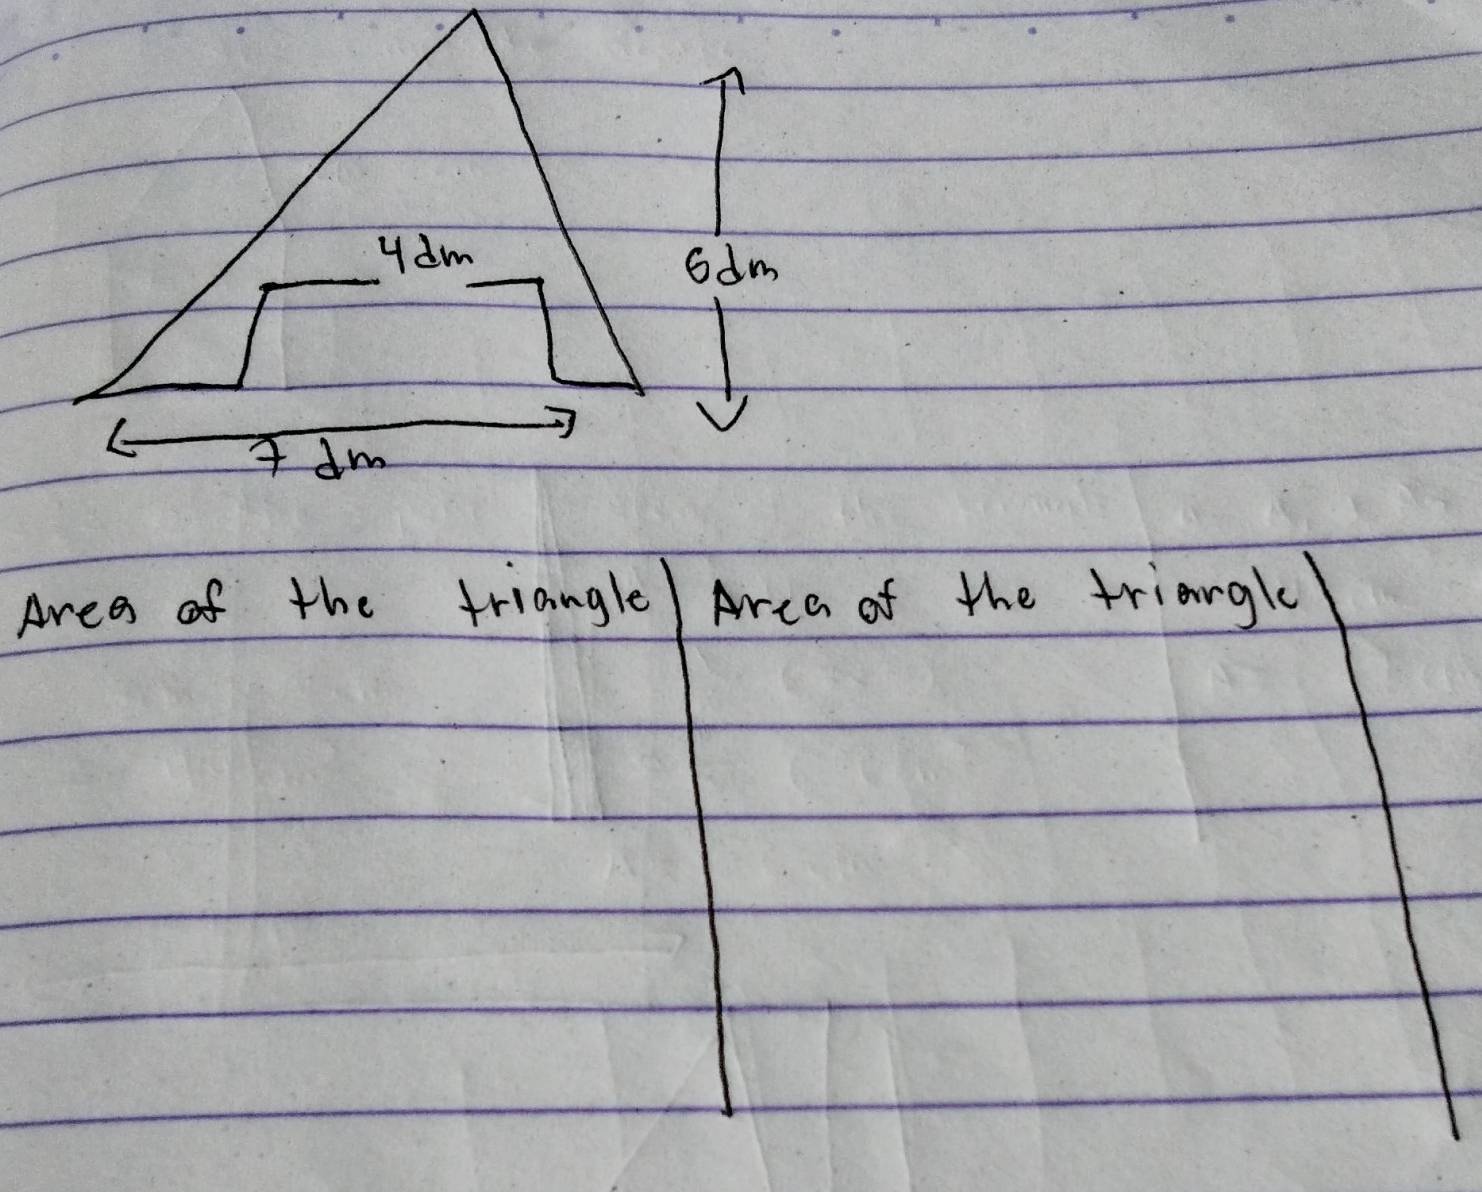 4dm
6dm
7 dm
Area of the triangle
Area of the triangle